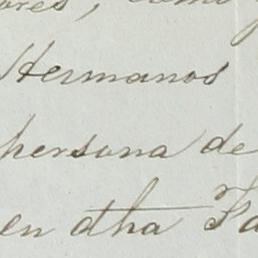 ores, como
Hermanos
persona de
en dha Fa